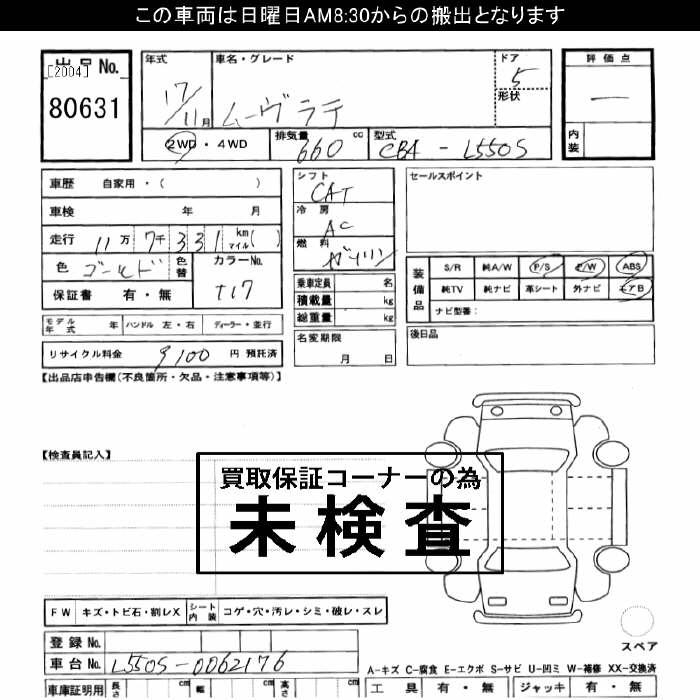 この車両は日曜日AM8:30からの搬出となります
出品No.
[2004]
80631
年式
17/11月
車名・グレード
ムーヴラテ
ドア
5
形状
2WD・4WD
排気量 660 cc
型式 CBA-L550S
評価点
—
内装
車歴 自家用・( )
車検 年 月
走行 11万 7千 331 km マイル( )
色 ゴールド 色替 カラーNo.
T17
保証書 有・無
モデル年式 年 ハンドル 左・右 ディーラー・並行
リサイクル料金 9100 円 預託済
シフト
CAT
冷房
AC
燃料
ガソリン
乗車定員 名
積載量 kg
総重量 kg
名変期限
月 日
セールスポイント
装備品
S/R 純A/W P/S P/W ABS
純TV 純ナビ 革シート 外ナビ エアB
ナビ型番:
後日品
【出品店申告欄(不良箇所・欠品・注意事項等)】
【検査員記入】
買取保証コーナーの為
未検査
FW キズ・トビ石・割レX シート内装 コゲ・穴・汚レ・シミ・破レ・スレ
登録No.
車台No. L550S-0062176
車庫証明用 長さ cm 幅 cm 高さ cm
スペア
A-キズ C-腐食 E-エクボ S-サビ U-凹ミ W-補修 XX-交換済
工具 有・無 ジャッキ 有・無